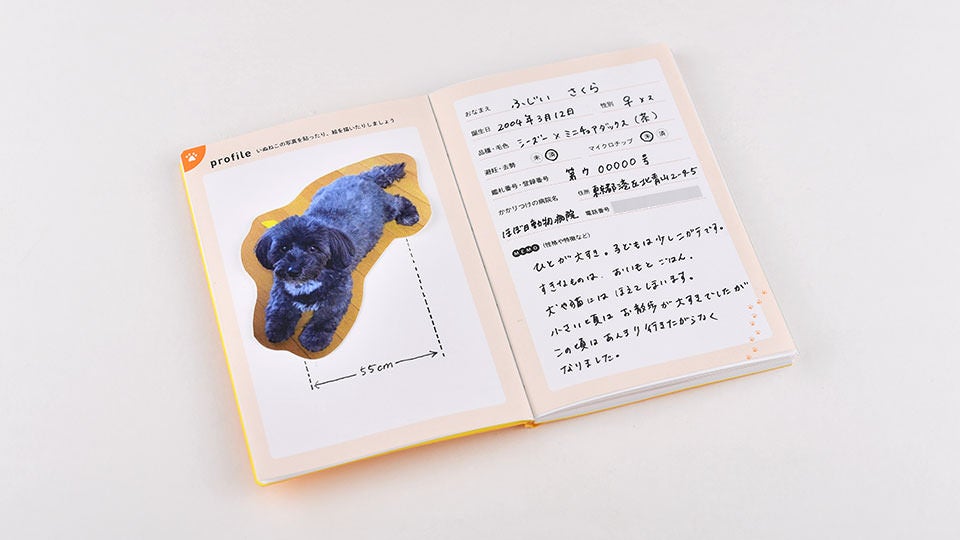 profile いぬねこの写真を貼ったり、絵を描いたりしましょう
55cm
おなまえ ふじい さくら
誕生日 2004年3月12日 性別 ♀ メス
品種・毛色 シーズー × ミニチュアダックス (茶)
避妊・去勢 未 済 マイクロチップ 未 済
鑑札番号・登録番号 第ウ 00000号
かかりつけの病院名 住所 東京都港区北青山2-9-5
ほぼ日動物病院 電話番号
MEMO (性格や特徴など)
ひとが大すき。子どもは少しニガテです。
すきなものは、おいもとごはん。
犬や猫にはほえてしまいます。
小さい頃はお散歩が大すきでしたが
この頃はあんまり行きたがらなく
なりました。